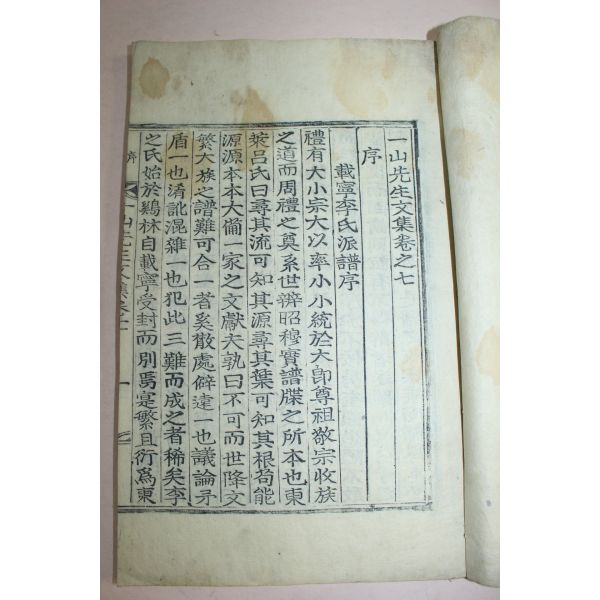 一山先生文集卷之七
序
載寧李氏派譜序
禮有大小宗大以率小小統於大卽尊祖敬宗收族
之道而周禮之奠系世辨昭穆實譜牒之所本也東
萊呂氏曰尋其流可知其源尋其葉可知其根苟能
源源本本大備一家之文獻夫孰曰不可而世降文
繁大族之譜難可合一者奚散處僻遠一也議論矛
盾一也淆訛混雜一也犯此三難而成之者稀矣李
之氏始於鷄林自載寧受封而別焉寔繁且衍爲東
序
一山先生文集卷七
一